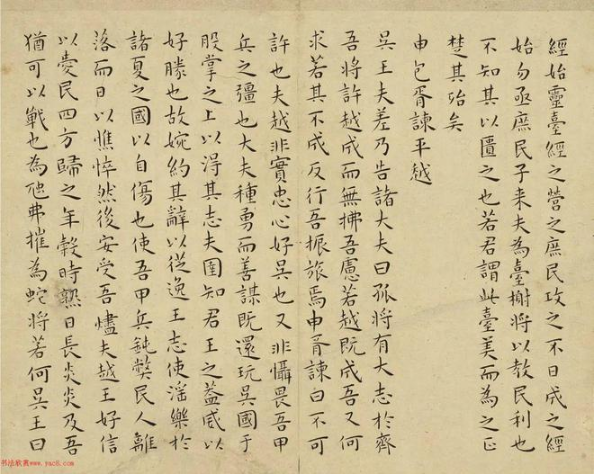 經始靈臺經之營之庶民攻之不日成之經
始勿亟庶民子来夫為臺榭將以教民利也
不知其以匱之也若君謂此臺美而為之正
楚其殆矣
申包胥諫平越
吳王夫差乃告諸大夫曰孤將有大志於齊
吾將許越成而無拂吾慮若越既成吾又何
求若其不成反行吾振旅焉申胥諫曰不可
許也夫越非實忠心好吳也又非懾畏吾甲
兵之彊也大夫種勇而善謀既還玩吳國于
股掌之上以淂其志夫固知君王之蓋威以
好勝也故婉約其辭以從逸王志使滛樂於
諸夏之國以自傷也使吾甲兵鈍獘民人離
落而日以憔悴然後安受吾燼夫越王好信
以愛民四方歸之年榖時熟日長炎炎及吾
猶可以戰也為虺弗摧為蛇將若何吳王曰
书法欣赏 www.yac8.com